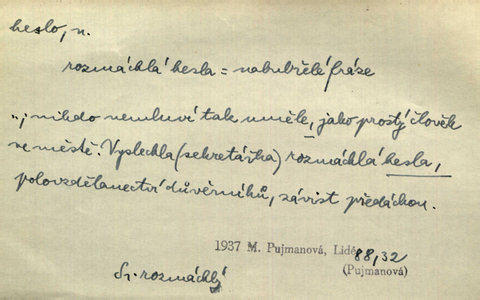 heslo, n.
rozmáchlá hesla = nabubřelé fráze
„; nikdo nemluví tak uměle, jako prostý člověk
ve městě. Vyslechla (sekretářka) rozmáchlá hesla,
polovzdělanectví důvěrníků, závist předáckou.
1937 M. Pujmanová, Lidé 88,32
(Pujmanová)
Sr. rozmáchlý